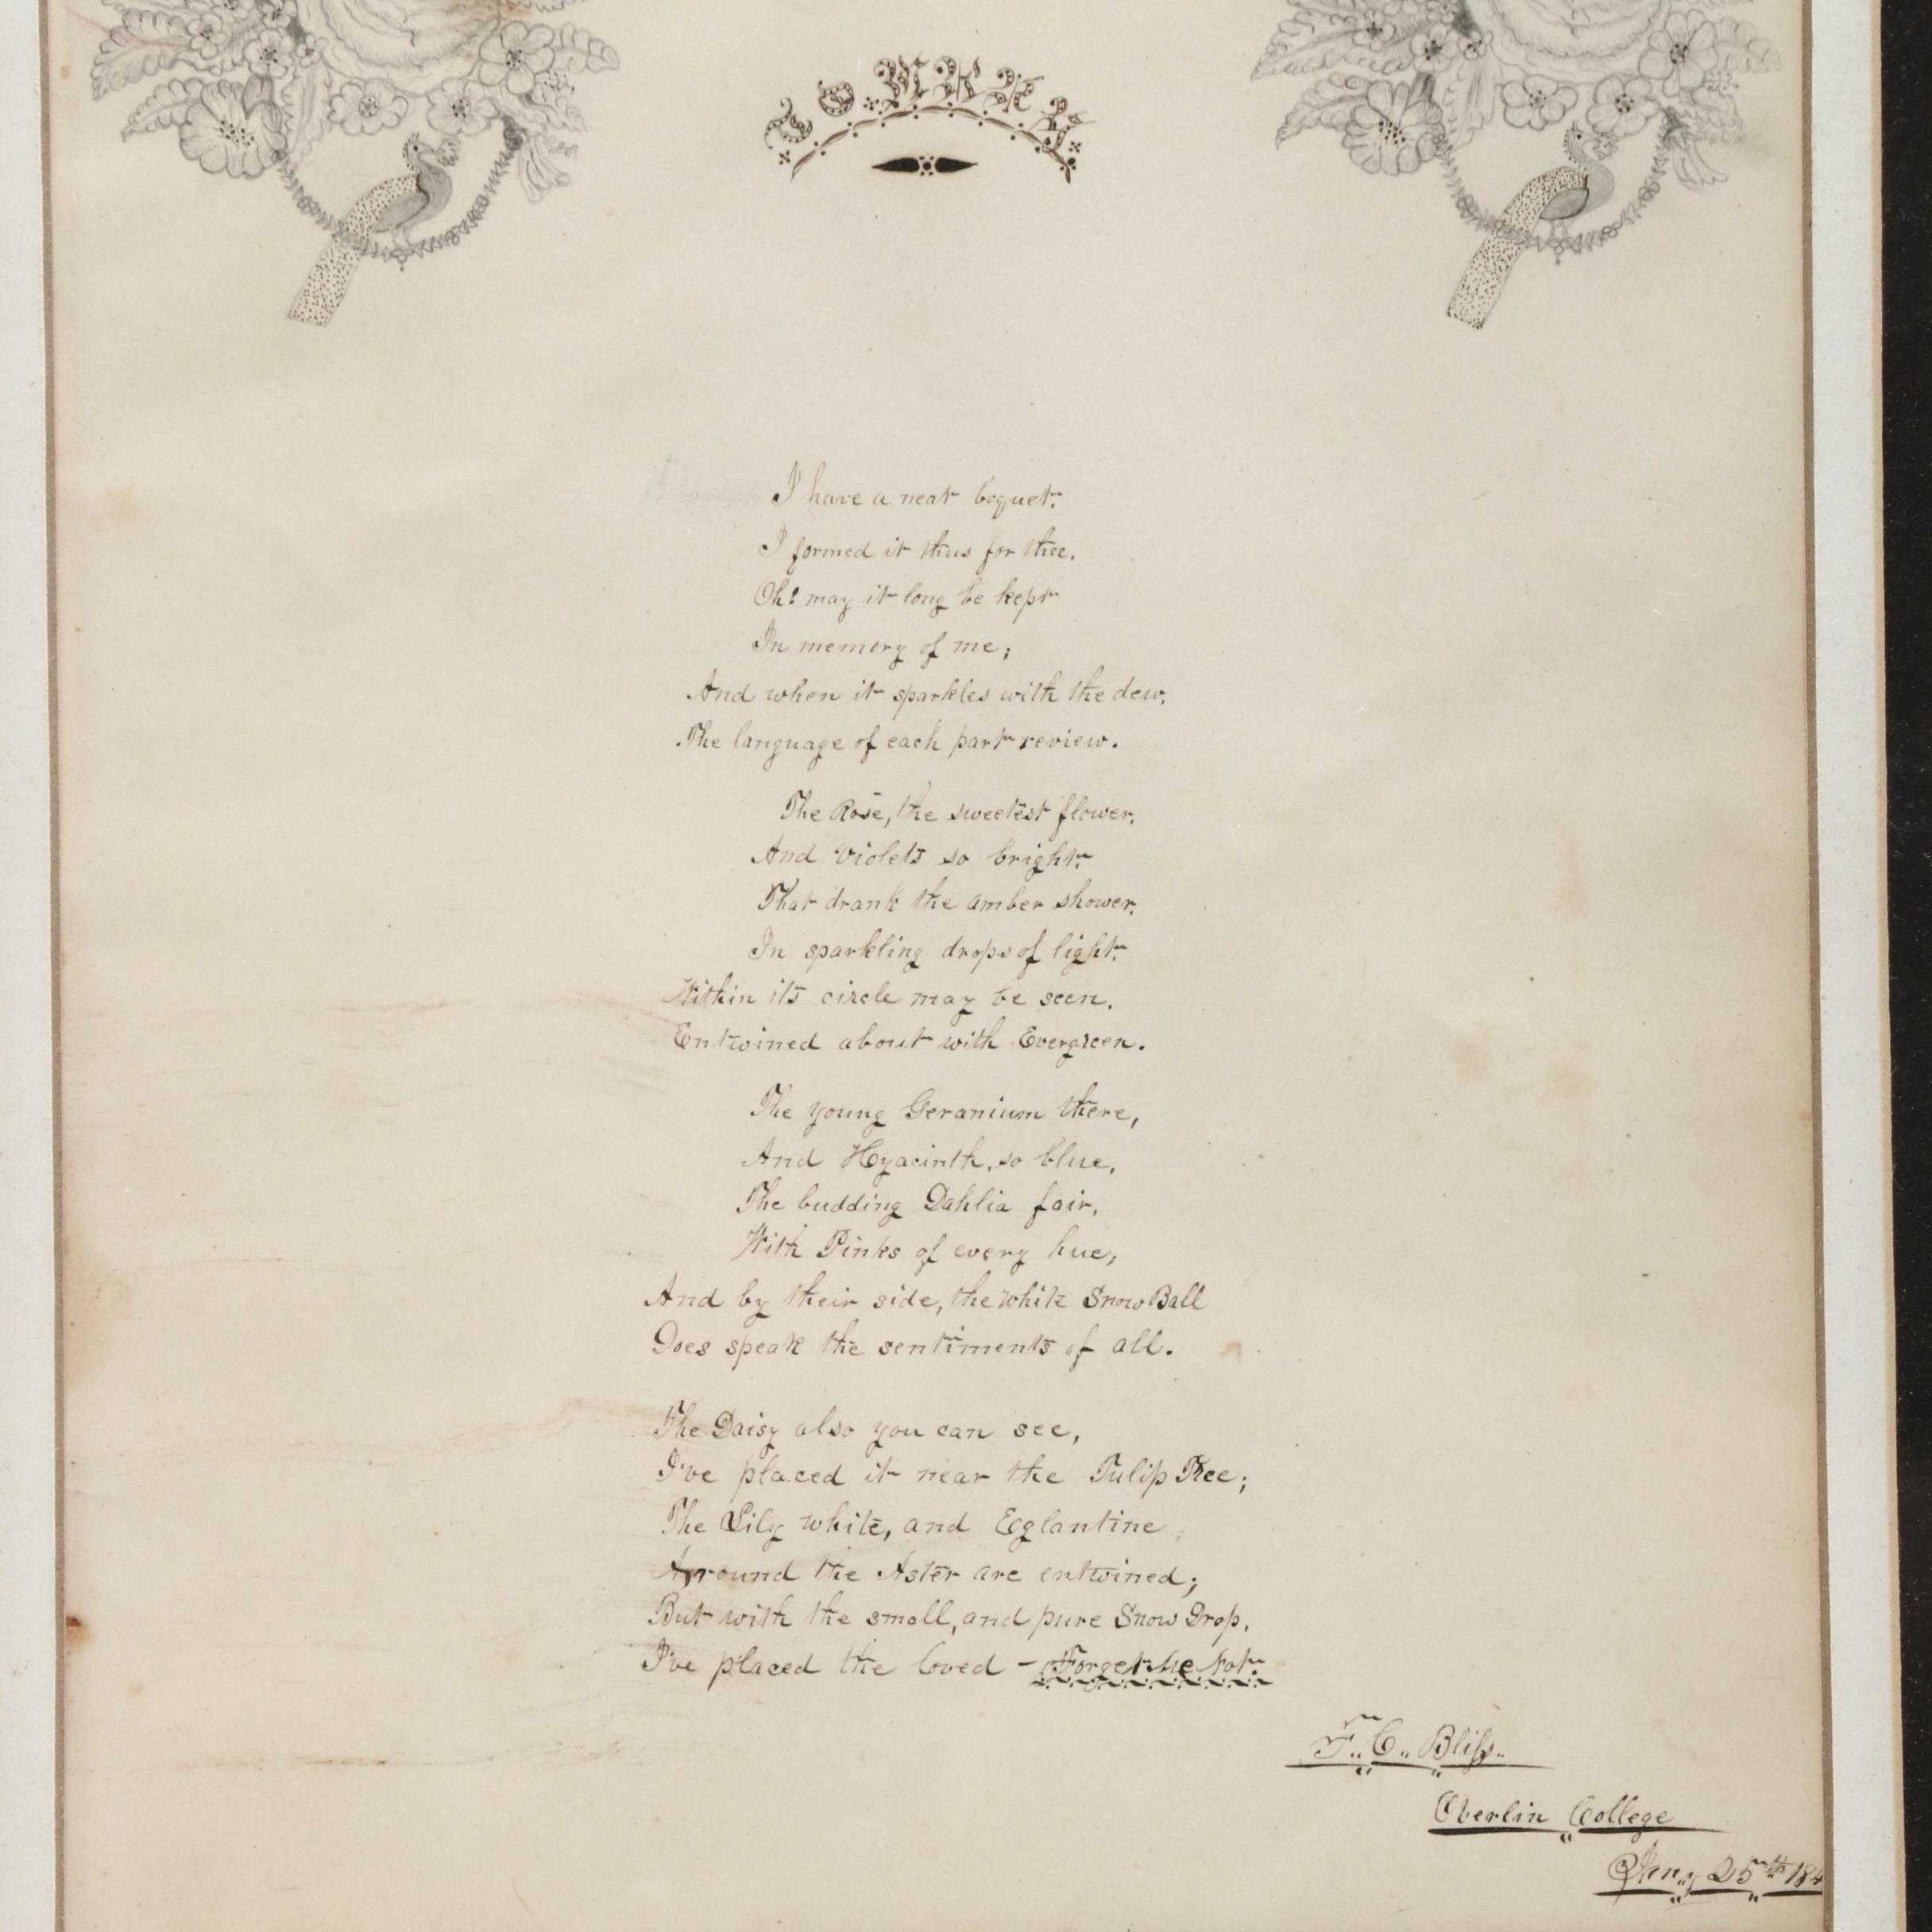 TO. MARY
I have a neat boquet.
I formed it thus for thee.
Oh! may it long be kept
In memory of me;
And when it sparkles with the dew.
The language of each part review.
The Rose, the sweetest flower.
And Violets so bright.
That drank the amber shower.
In sparkling drops of light.
Within its circle may be seen.
Entwined about with Evergreen.
The young Geranium there,
And Hyacinth, so blue,
The budding Dahlia fair,
With Pinks of every hue,
And by their side, the white Snow Ball
Does speak the sentiments of all.
The Daisy also you can see,
I've placed it near the Tulip Tree;
The Lily white, and Eglantine
Arround the Aster are entwined;
But with the small, and pure Snow Drop,
I've placed the loved – Forget Me Not.
F.. C.. Bliſs..
Oberlin College
Jany 25th 184